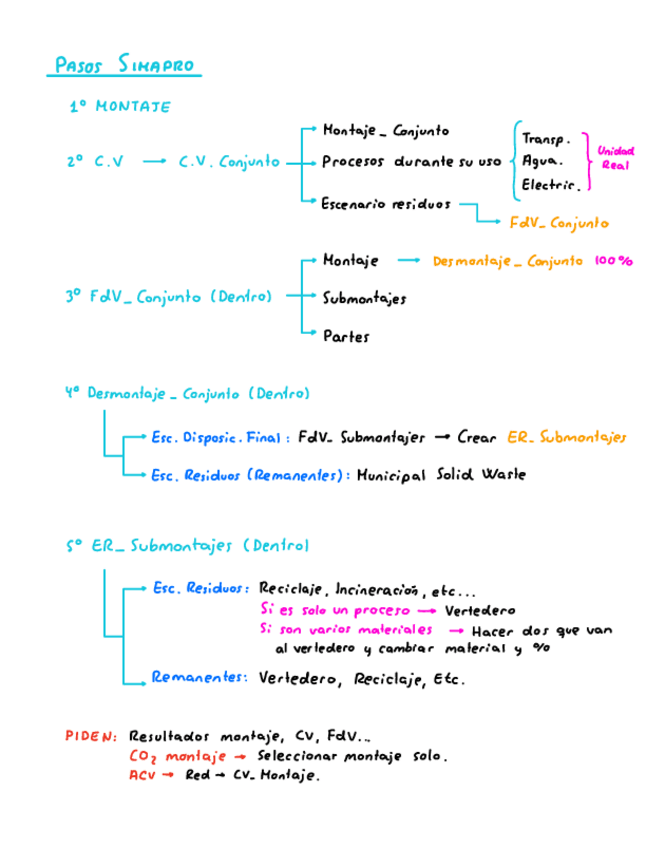 PASOS SIMAPRO
1º MONTAJE
2º C.V → C.V. Conjunto
Montaje_Conjunto
Procesos durante su uso
Transp.
Agua.
Electric.
Unidad
Real
Escenario residuos
FdV_Conjunto
3º FdV_Conjunto (Dentro)
Montaje → Desmontaje_Conjunto 100%
Submontajes
Partes
4º Desmontaje_Conjunto (Dentro)
Esc. Disposic. Final: FdV_Submontajes → Crear ER_Submontajes
Esc. Residuos (Remanentes): Municipal Solid Waste
5º ER_Submontajes (Dentro)
Esc. Residuos: Reciclaje, Incineración, etc...
Si es solo un proceso → Vertedero
Si son varios materiales → Hacer dos que van
al vertedero y cambiar material y %
Remanentes: Vertedero, Reciclaje, Etc.
PIDEN: Resultados montaje, CV, FdV...
CO₂ montaje → Seleccionar montaje solo.
ACV → Red → CV_Montaje.